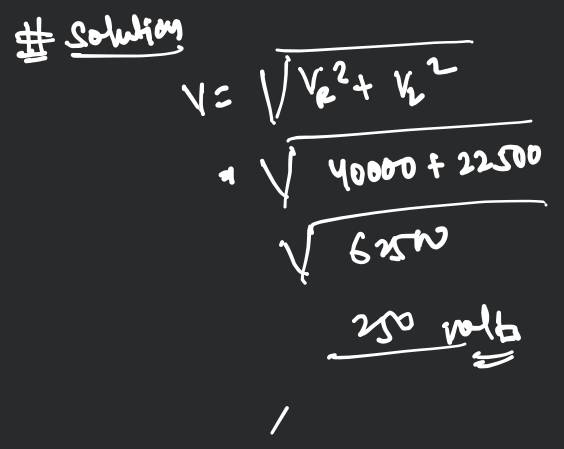 # Solution
V = √(V_R² + V_L²)
= √(40000 + 22500)
√62500
250 volts